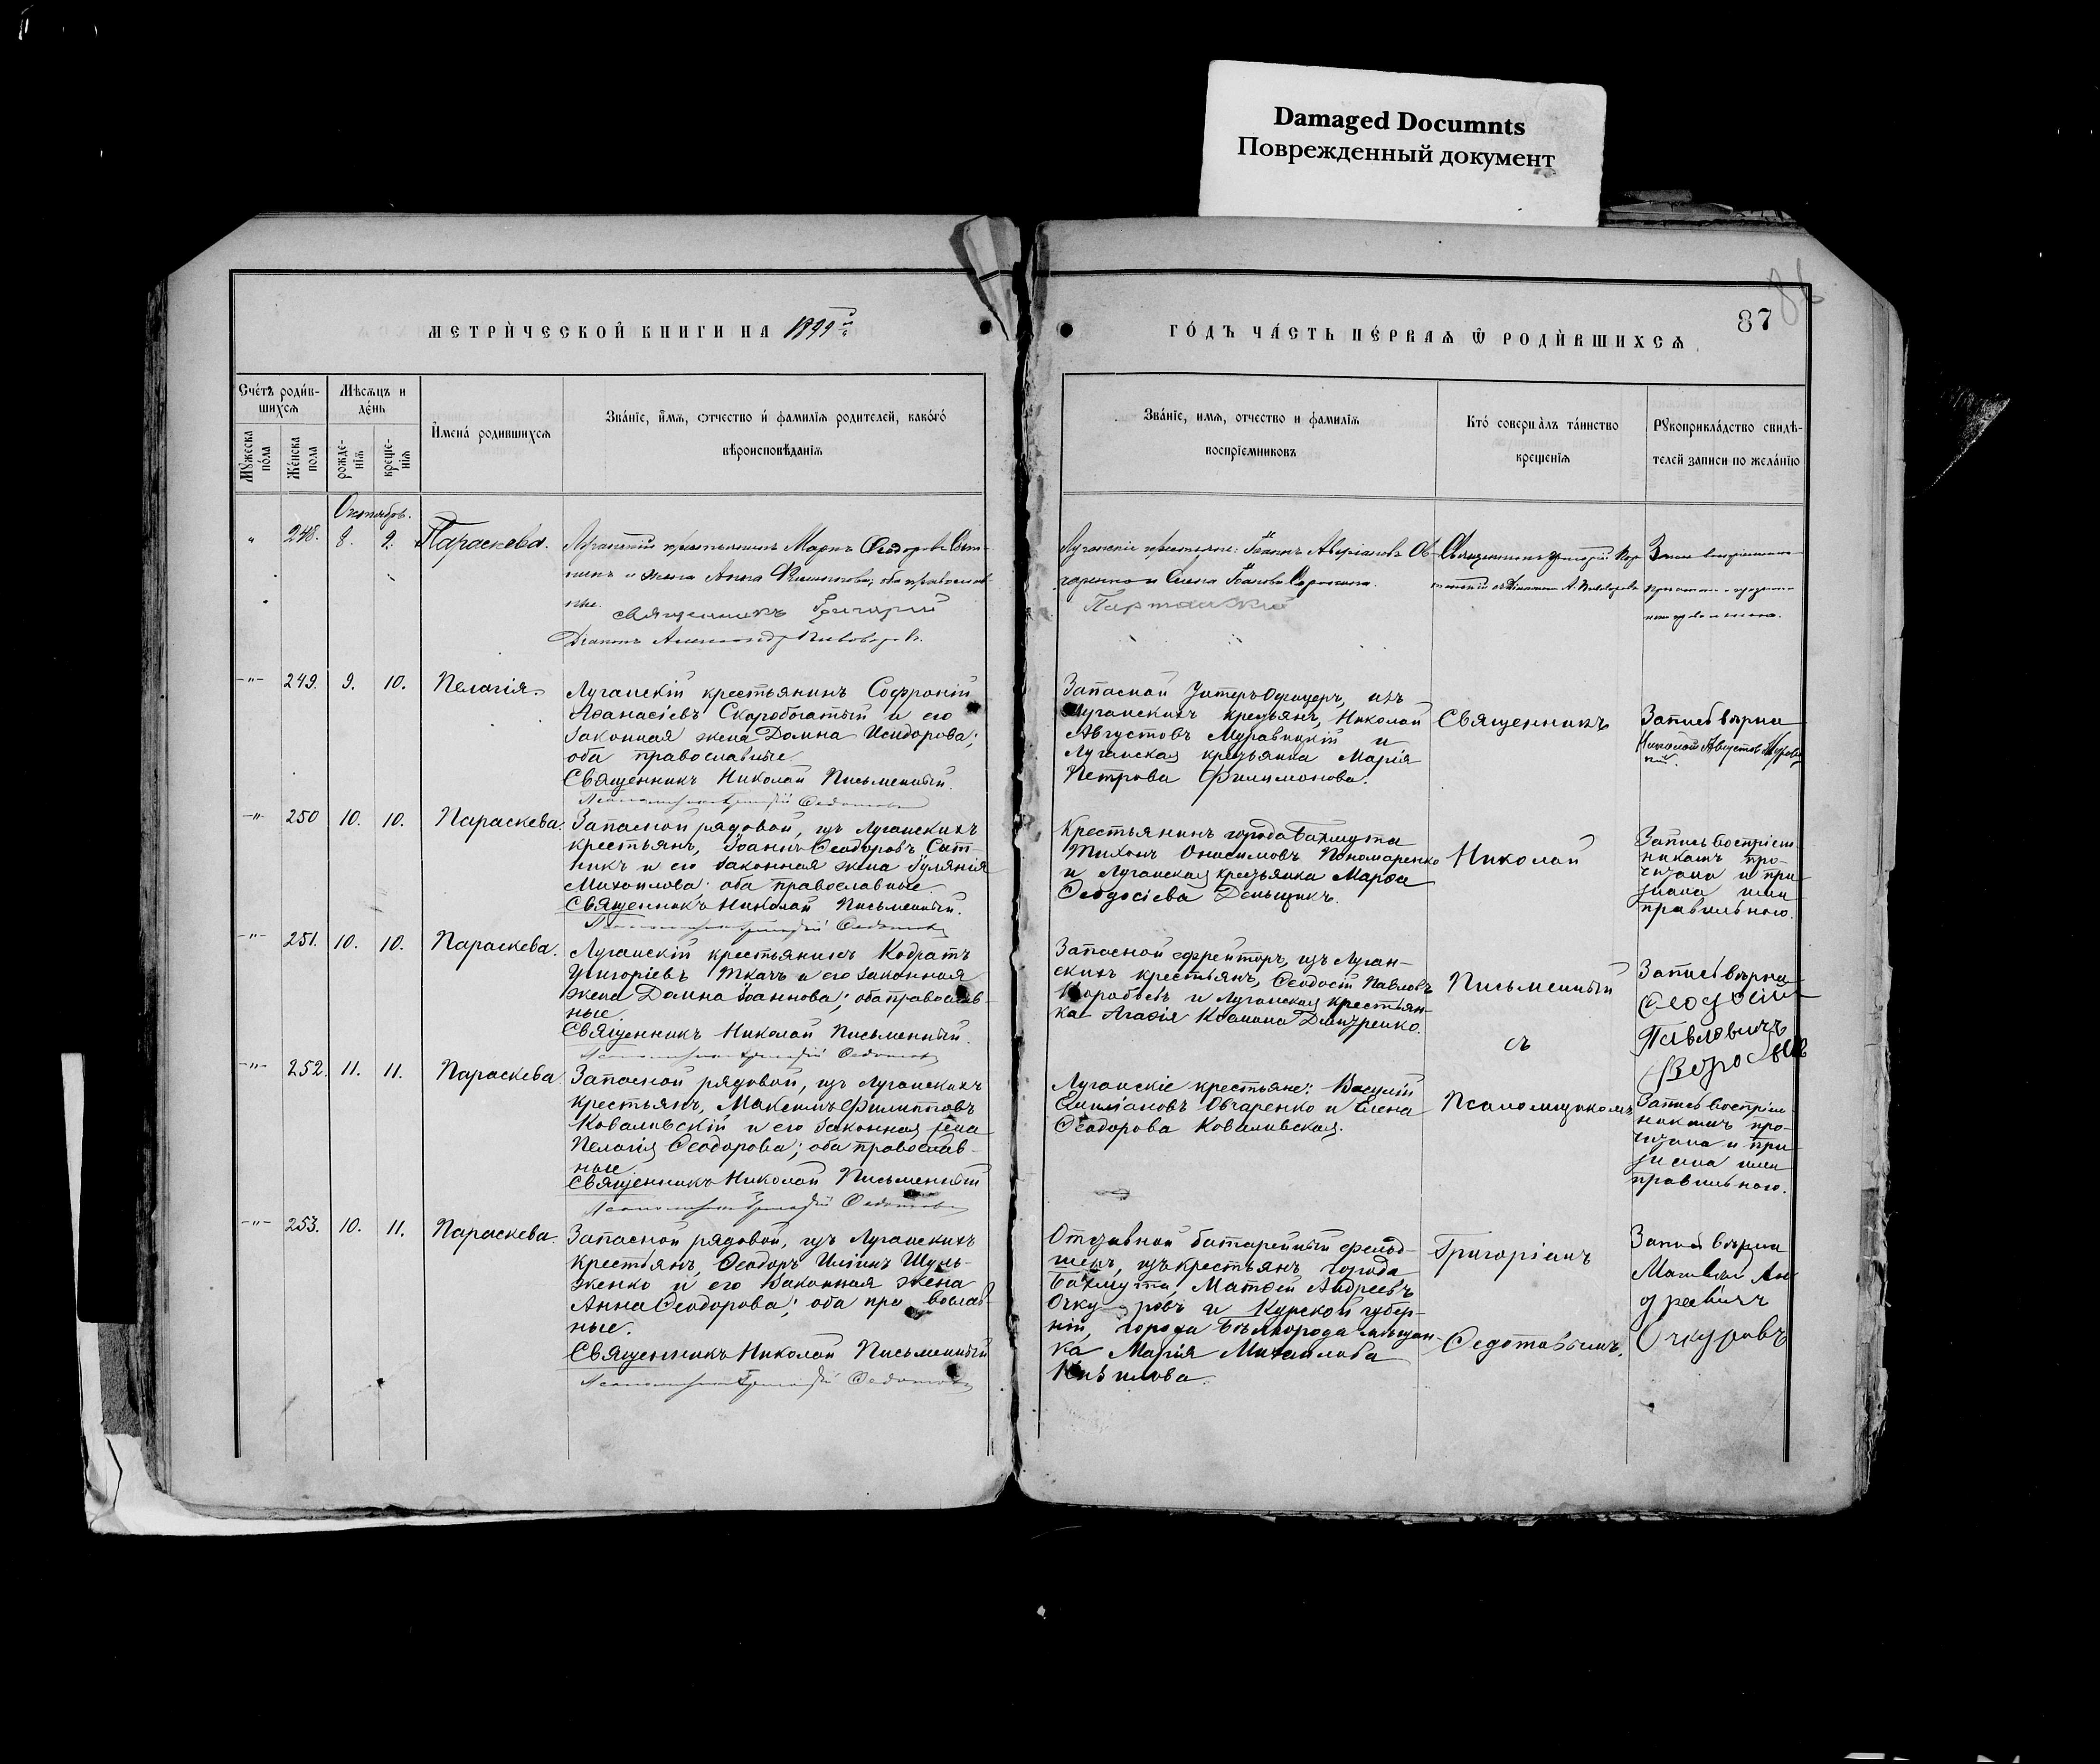 Damaged Documnts
Поврежденный документ
86
87
МЕТРИЧЕСКОЙ КНИГИ НА 1899й
ГОДЪ ЧАСТЬ ПЕРВАЯ Ѿ РОДИВШИХСѦ
Счетъ родив-
шихсѧ
Мѣсѧцъ и
день
Мꙋжеска
пола
Женска
пола
рожде-
нїѧ
креще-
нїѧ
Имена родившихсѧ
Званїе, имѧ, отчество и фамилїѧ родителей, какого
вѣроисповѣданїѧ
Званїе, имѧ, отчество и фамилїѧ
воспрїемниковъ
Кто совершалъ таинство
крещенїѧ
Рꙋкоприкладство свидѣ-
телей записи по желанїю
Октябрь.
" 248. 8. 9. Параскева.
Луганскій крестьянинъ Маркъ Ѳеодоровъ Сот-
никъ и жена Анна; оба православ-
ные. священникъ Григорій
Діаконъ Александръ Пивоваровъ.
Луганскіе крестьяне: Іоаннъ Аверіановъ Ов-
чаренко и Елена Іоаннова
Священникъ Григорій
съ Діакономъ А. Пивоваровъ
-"- 249. 9. 10. Пелагія.
Луганскій крестьянинъ Софроній
Аѳанасіевъ Скоробогатый и его
законная жена Домна Исидорова;
оба православные.
Священникъ Николай Письменный.
Псаломщикъ Григорій Ѳедотовъ
Запасной Унтеръ Офицеръ, изъ
Луганскихъ крестьянъ, Николай
Августовъ Муравицкій и
Луганская крестьянка Марія
Петрова Филимонова.
Священникъ
Запись вѣрна
Николай Августов
-"- 250 10. 10. Параскева.
Запасной рядовой, изъ Луганскихъ
крестьянъ, Іоаннъ Ѳеодоровъ Сот-
никъ и его законная жена Іуліанія
Михайлова; оба православные.
Священникъ Николай Письменный.
Псаломщикъ Григорій Ѳедотовъ
Крестьянинъ города Бахмута
Тихонъ Онисимовъ Пономаренко
и Луганская крестьянка Марѳа
Ѳеодосіева Деньщикъ.
Николай
Запись воспріем-
никамъ про-
читана и при-
знана ими
правильною.
-"- 251. 10. 10. Параскева.
Луганскій крестьянинъ Кодратъ
Григоріевъ Ткачъ и его законная
жена Домна Іоаннова; оба православ-
ные.
Священникъ Николай Письменный.
Псаломщикъ Григорій Ѳедотовъ
Запасной ефрейторъ, изъ Луган-
скихъ крестьянъ, Ѳеодосій Павловъ
Воробьевъ и Луганская крестьян-
ка Агаѳія Космина Дмитренко.
Письменный
съ
Запись вѣрна
Ѳеодосій
Павловичъ
-"- 252. 11. 11. Параскева
Запасной рядовой, изъ Луганскихъ
крестьянъ, Максимъ Филипповъ
Ковалевскій и его законная жена
Пелагія Ѳеодорова; оба православ-
ные.
Священникъ Николай Письменный
Псаломщикъ Григорій Ѳедотовъ
Луганскіе крестьяне: Василій
Емиліановъ Овчаренко и Елена
Ѳеодорова Ковалевская.
Псаломщикомъ
Запись воспріем-
никамъ про-
читана и при-
знана ими
правильною.
-"- 253. 10. 11. Параскева.
Запасной рядовой, изъ Луганскихъ
крестьянъ, Ѳеодоръ Иліинъ Шуль-
женко и его законная жена
Анна Ѳеодорова; оба православ-
ные.
Священникъ Николай Письменный
Псаломщикъ Григорій Ѳедотовъ
Отставной батарейный фельд-
шеръ, изъ крестьянъ города
Бахмута, Матѳей Андреевъ
Очкуровъ и Курской губер-
ніи, города Бѣлгорода мѣщан-
ка Марія Михайлова
Григоріемъ
Ѳедотовымъ.
Запись вѣрна
Матвей Ан
дреевич
Очкуровъ